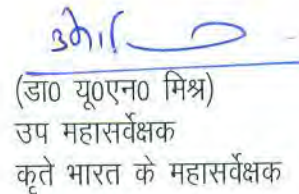 (डा0 यू0एन0 मिश्र)
उप महासर्वेक्षक
कृते भारत के महासर्वेक्षक